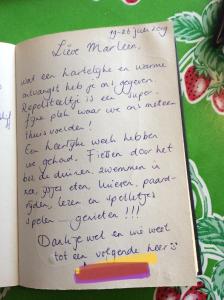 19-26 juli 2019
Lieve Marleen,
wat een hartelijke en warme
ontvangst heb je ons gegeven
Repelsteeltje is een super-
fijne plek waar we ons meteen
thuis voelden!
Een heerlijke week hebben
we gehad. Fietsen door het
bos, de duinen, zwemmen in
zee, ijsjes eten, luieren, paard-
rijden, lezen en spelletjes
spelen — genieten!!!
Dankje wel en wie weet
tot een volgende keer